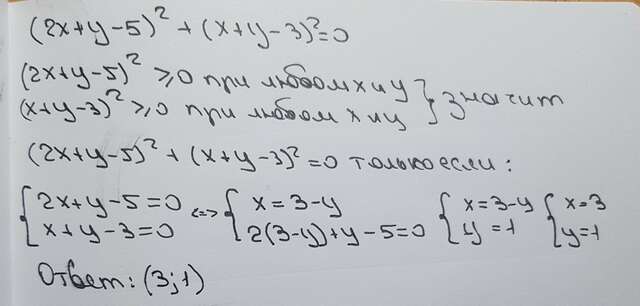 (2x+y-5)² + (x+y-3)²=0
(2x+y-5)² ⩾0 при любом x и y
(x+y-3)² ⩾0 при любом x и y } значит
(2x+y-5)² + (x+y-3)²=0 только если:
{ 2x+y-5=0 <=> { x=3-y { x=3-y { x=3
x+y-3=0 2(3-y)+y-5=0 y=1 y=1
Ответ: (3;1)